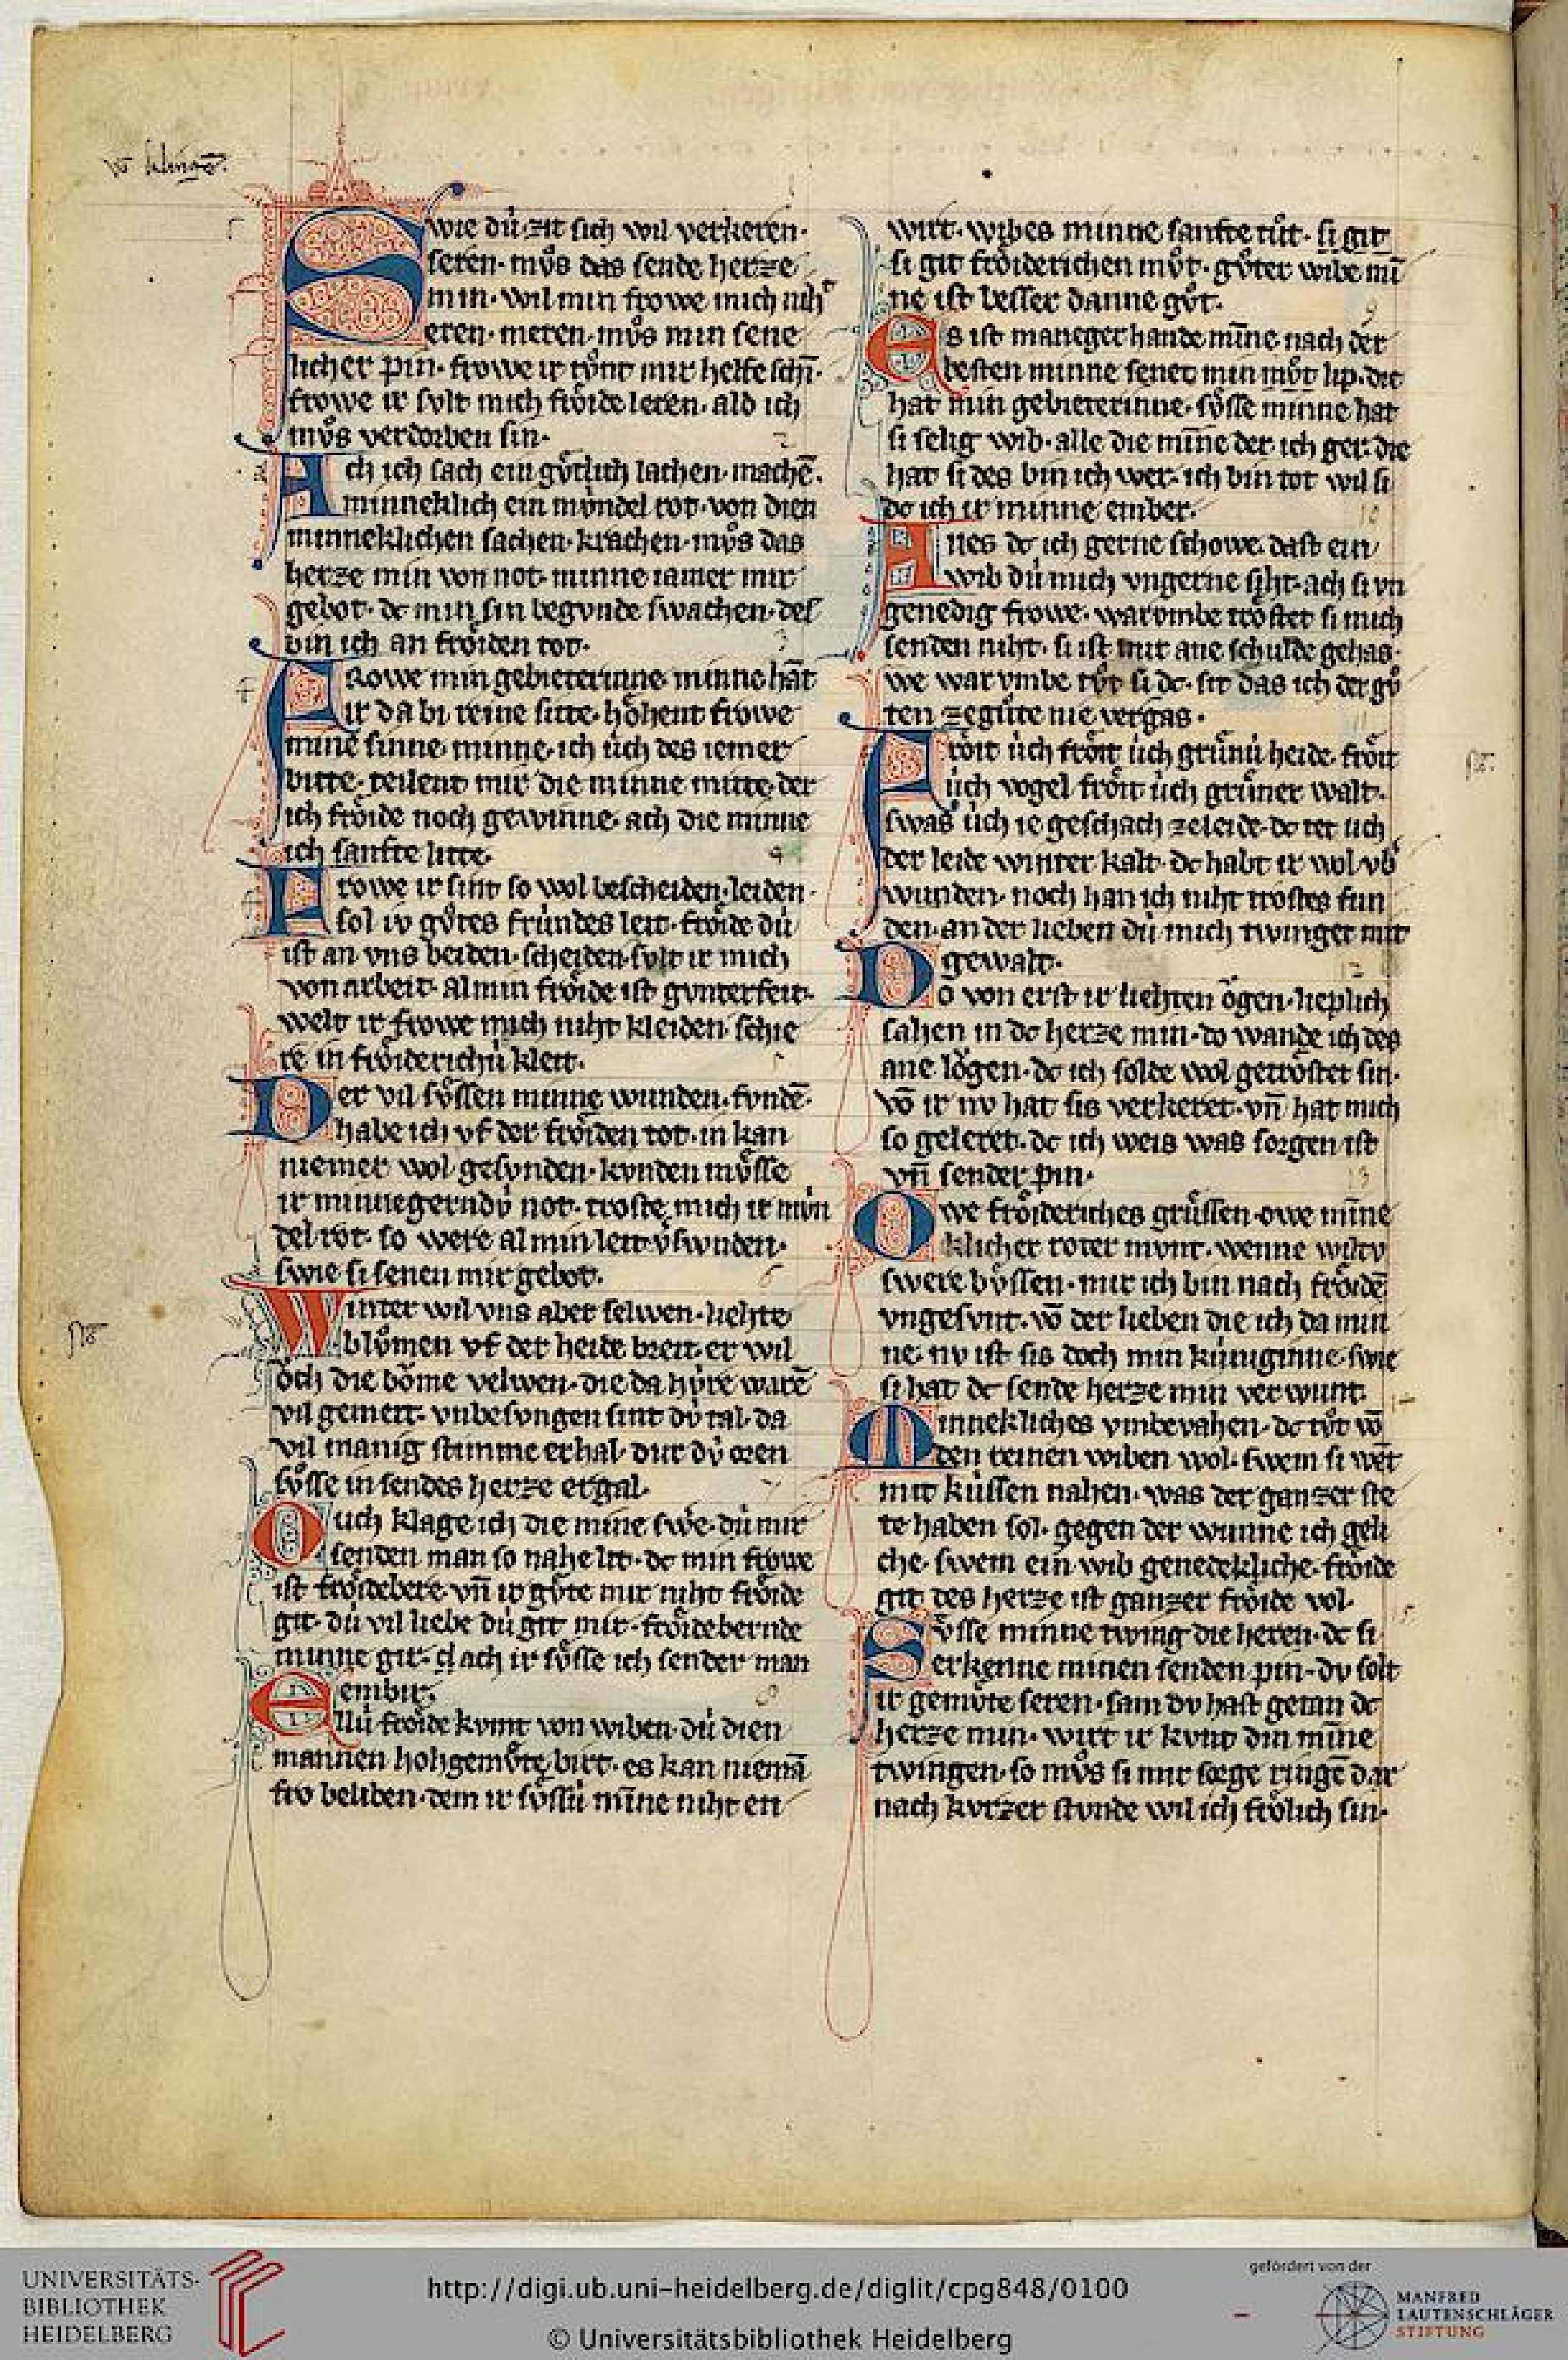 w klingē.
Swie dú zit sich wil verkeren·
seren· mv̊s das sende herze
min· wil min frowe mich niht
eren· meren· mv̊s min sene
licher pin· frowe ir tv̊nt mir helfe schin·
frowe ir svlt mich frȯ̈ide leren· ald ich
mv̊s verdorben sin·
2
Ach ich sach ein gv̊tlich lachen· machē·
minneklich ein mv̇ndel rot· von dien
minneklichen sachen· krachen· mv̊s das
herze min von not· minne iamer mir
gebot· dc min sin begvnde swachen· des
bin ich an frȯ̈iden tot·
3
Frowe min gebieterinne· minne hāt
ir da bi reine sitte· hȯ̈hent frowe
mine sinne· minne· ich úch des iemer
bitte· teilent mir die minne mitte· der
ich frȯ̈ide noch gewinne· ach die minne
ich sanfte litte·
4
Frowe ir sint so wol bescheiden· leiden·
sol iv gv̊tes frúndes leit· frȯ̈ide dú
ist an vns beiden· scheiden· svlt ir mich
von arbeit· al min frȯ̈ide ist gvnterfeit·
welt ir frowe mich niht kleiden· schie
re in frȯ̈iderichú kleit·
5
Der vil sv̊ssen minne wunden· fvndē·
habe ich vf der frȯ̈iden tot· in kan
niemer wol gesvnden· kvnden mv̊sse
ir minnegerndv́ not· trȯste mich ir mv́n
del rot· so were al min leit v̓swnden·
swie si senen mir gebot·
6
Winter wil vns aber selwen· liehte
blv̊men vf der heide breit· er wil
ȯch die bȯme velwen· die da hv́re warē
vil gemeit· vnbesvngen sint dv́ tal· da
vil manig stimme erhal· dur dv́ oren
sv̊sse in sendes herze ergal·
7
Ouch klage ich die mine swe· dú mir
senden man so nahe lit· dc min frowe
ist frȯ̈idebere· vn̄ ir gv̊te mir niht frȯ̈ide
git· dú vil liebe dú git mir· frȯ̈idebernde
minne gir· d ach ir sv̊sse ich sender man
enbir·
8
Ellú frȯ̈ide kvmt von wiben· dú dien
mannen hohgemv̊te birt· es kan niemā
fro beliben· dem ir sv̊ssú mīne niht en
wirt· wibes minne sanfte tv̊t· si git
si git frȯ̈iderichen mv̊t· gv̊ter wibe mī
ne ist besser danne gv̊t·
9
Es ist maneger hande mīne· nach der
besten minne senet min mv̊t lip· die
hat min gebieterinne· sv̊sse minne hat
si selig wib· alle die mīne der ich ger· die
hat si des bin ich wer· ich bin tot wil si
dc ich ir minne enber·
10
Anes dc ich gerne schowe· dast ein
wib dú mich vngerne siht· ach si vn
genedig frowe· warvmbe trȯstet si mich
senden niht· si ist mir ane schulde gehas·
we warvmbe tv̊t si dc· sit das ich der gv̊
ten ze gv̊te nie vergas·
11
Frȯ̈it úch frȯ̈it úch grv̊nú heide· frȯ̈it
úch vogel frȯ̈it úch grv̊ner walt·
swas úch ie geschach ze leide· dc tet úch
der leide winter kalt· dc habt ir wol vb̓
wunden· noch han ich niht trostes fun
den· an der lieben dú mich twinget mit
gewalt·
12
Do von erst ir liehten ȯgen· lieplich
sahen in dc herze min· do wande ich des
ane lȯgen· dc ich solde wol getrȯstet sin·
vō ir nv hat sis verkeret· vn̄ hat mich
so geleret· dc ich weis was sorgen ist
vn̄ sender pin·
13
Owe frȯ̈ideriches grv̊ssen· owe mīne
klicher roter mvnt· wenne wiltv
swere bv̊ssen· mir ich bin nach frȯ̈idē
vngesvnt· vō der lieben die ich da min
ne· nv ist sis doch min kúniginne· swie
si hat dc sende herze min verwunt·
Minnekliches vmbevahen· dc tv̊t vō
den reinen wiben wol· swem si wēt
mit kússen nahen· was der ganzer ste
te haben sol· gegen der wunne ich geli
che· swem ein wib genedekliche· frȯ̈ide
git des herze ist ganzer frȯ̈ide vol·
15
Sv̊sse minne twing die heren· dc si
erkenne minen senden pin· dv solt
ir gemv̊te seren· sam dv hast getan dc
herze min· wirt ir kvnt din mīne
twingen· so mv̊s si mit sorge ringē dar
nach kvrzer stvnde wil ich frȯlich sin·
UNIVERSITÄTS-
BIBLIOTHEK
HEIDELBERG
http://digi.ub.uni-heidelberg.de/diglit/cpg848/0100
© Universitätsbibliothek Heidelberg
gefördert von der
MANFRED
LAUTENSCHLÄGER
STIFTUNG